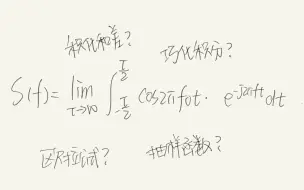 积化和差? 巧化积分?
S(f)=lim_{T→∞}∫_{-T/2}^{T/2} cos2πf₀t · e^{-j2πft}dt
欧拉公式? 抽样函数?